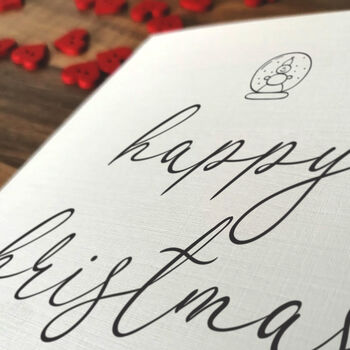 happy
christmas